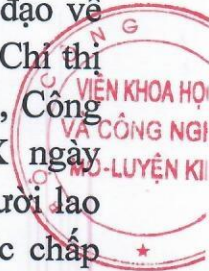 đạo về
Chỉ thị
, Công
X ngày
ười lao
c chấp
VIỆN KHOA HỌ
VÀ CÔNG NGH
MỎ-LUYỆN KI